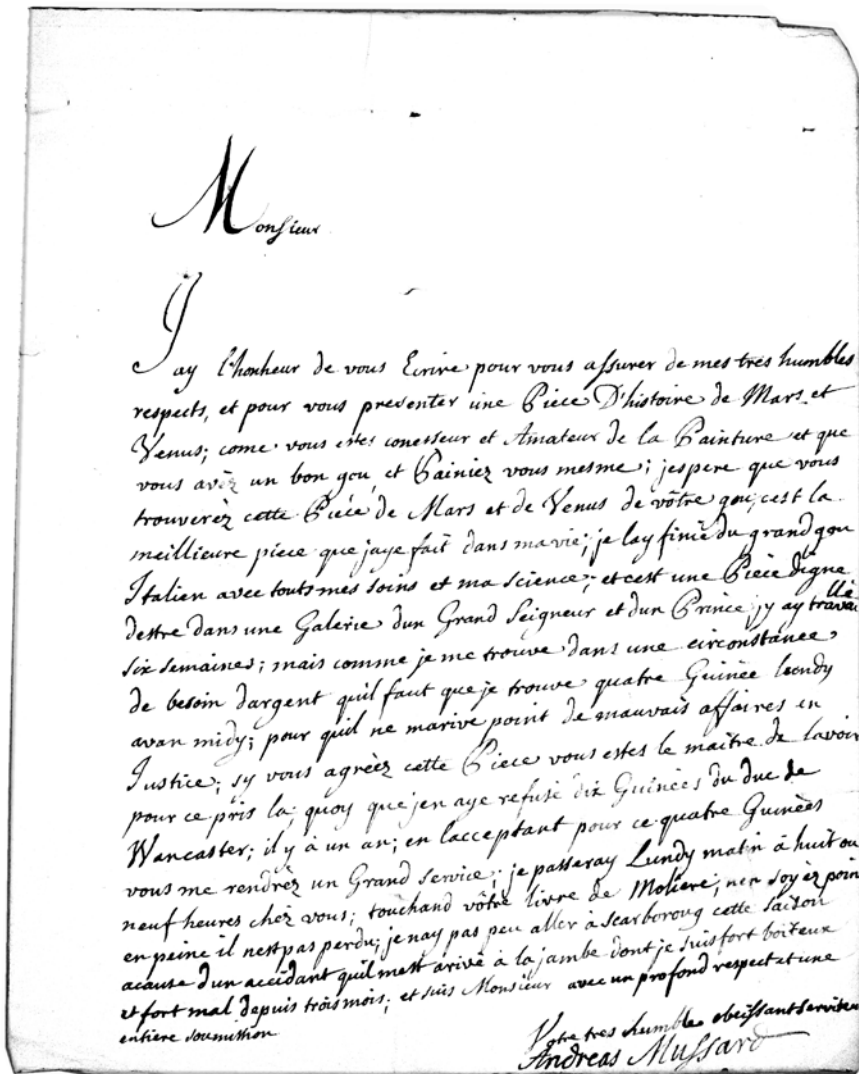 Monsieur
Jay l'honheur de vous Ecrire pour vous assurer de mes tres humbles
respects, et pour vous presenter une Piece D'histoire de Mars et
Venus; come vous estes conesseur et Amateur de la Painture et que
vous avéz un bon gou, et Painiez vous mesme; jespere que vous
trouveréz cette Piece de Mars et de Venus de vôtre gou; cest la
meillieure piece que jaye fait dans ma vie; je lay finie du grand gou
Italien avec touts mes soins et ma science; et cest une Piece digne
destre dans une Galerie dun Grand Seigneur et dun Prince jy ay travaillé
six semaines; mais comme je me trouve dans une circonstance
de besoin dargent quil faut que je trouve quatre Guinée Lundy
avan midy; pour quil ne marive point de mauvais affaires en
Justice; sy vous agreéz cette Piece vous estes le maitre de lavoir
pour ce pris la; quoy que jen aye refusé dix Guinées du duc de
Wancaster; il y à un an; en lacceptant pour ce quatre Guinées
vous me rendréz un Grand service; je passeray Lundy matin à huit ou
neuf heures chéz vous; touchand vôtre livre de Moliere; nen soyéz poin
en peine il nest pas perdu; je nay pas peu aller à scarboroug cette saison
acause dun accidant quil mest arivé à la jambe dont je suis fort boiteux
et fort mal depuis trois mois; et suis Monsieur avec un profond respect et une
entiere soumission
Votre tres humble obeissant serviteur
Andreas Mussard